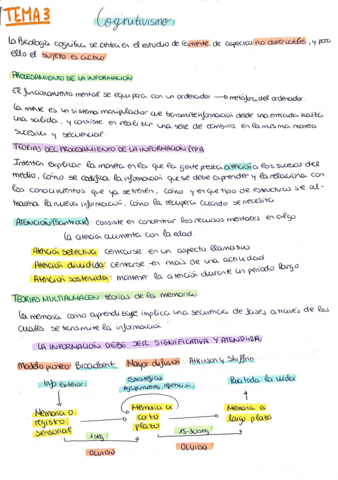 TEMA 3
Cognitivismo
La Psicología cognitiva se centra en el estudio de la mente, de aspectos no observables, y para
ello el sujeto es activo
PROCESAMIENTO DE LA INFORMACIÓN
El funcionamiento mental se equipara con un ordenador → metáfora del ordenador.
La mente es un sistema manipulador que transmite información desde una entrada hasta
una salida, y consiste en realizar una serie de cambios en la misma manera
sucesiva y secuencial
TEORÍAS DEL PROCESAMIENTO DE LA INFORMACIÓN (TPI)
Intentan explicar la manera en la que la gente presta atención a los sucesos del
medio, como se codifica la información que se debe aprender y la relaciona con
los conocimientos que ya se tienen, cómo y en que tipo de estructuras se al-
macena la nueva información, cómo la recupera cuando se necesita.
ATENCIÓN (Santrock) consiste en concentrar los recursos mentales en algo
La atención aumenta con la edad.
Atención selectiva: centrarse en un aspecto llamativo
Atención dividida: centrarse en más de una actividad
Atención sostenida: mantener la atención durante un periodo largo.
TEORÍAS MULTIALMACEN: teorías de la memoria.
La memoria como aprendizaje implica una secuencia de fases a través de las
cuales se transmite la información.
LA INFORMACIÓN DEBE SER SIGNIFICATIVA Y ATENDIDA
Modelo pionero: Broadbent Mayor difusión: Atkinson y Shiffrin
Info Exterior
estrategias
Agrupamientos, repetición
Para toda la vida
Memoria o
registro
sensorial
Memoria a
corto
plazo
Memoria a
largo plazo
1 seg
15-30 seg
OLVIDO
OLVIDO